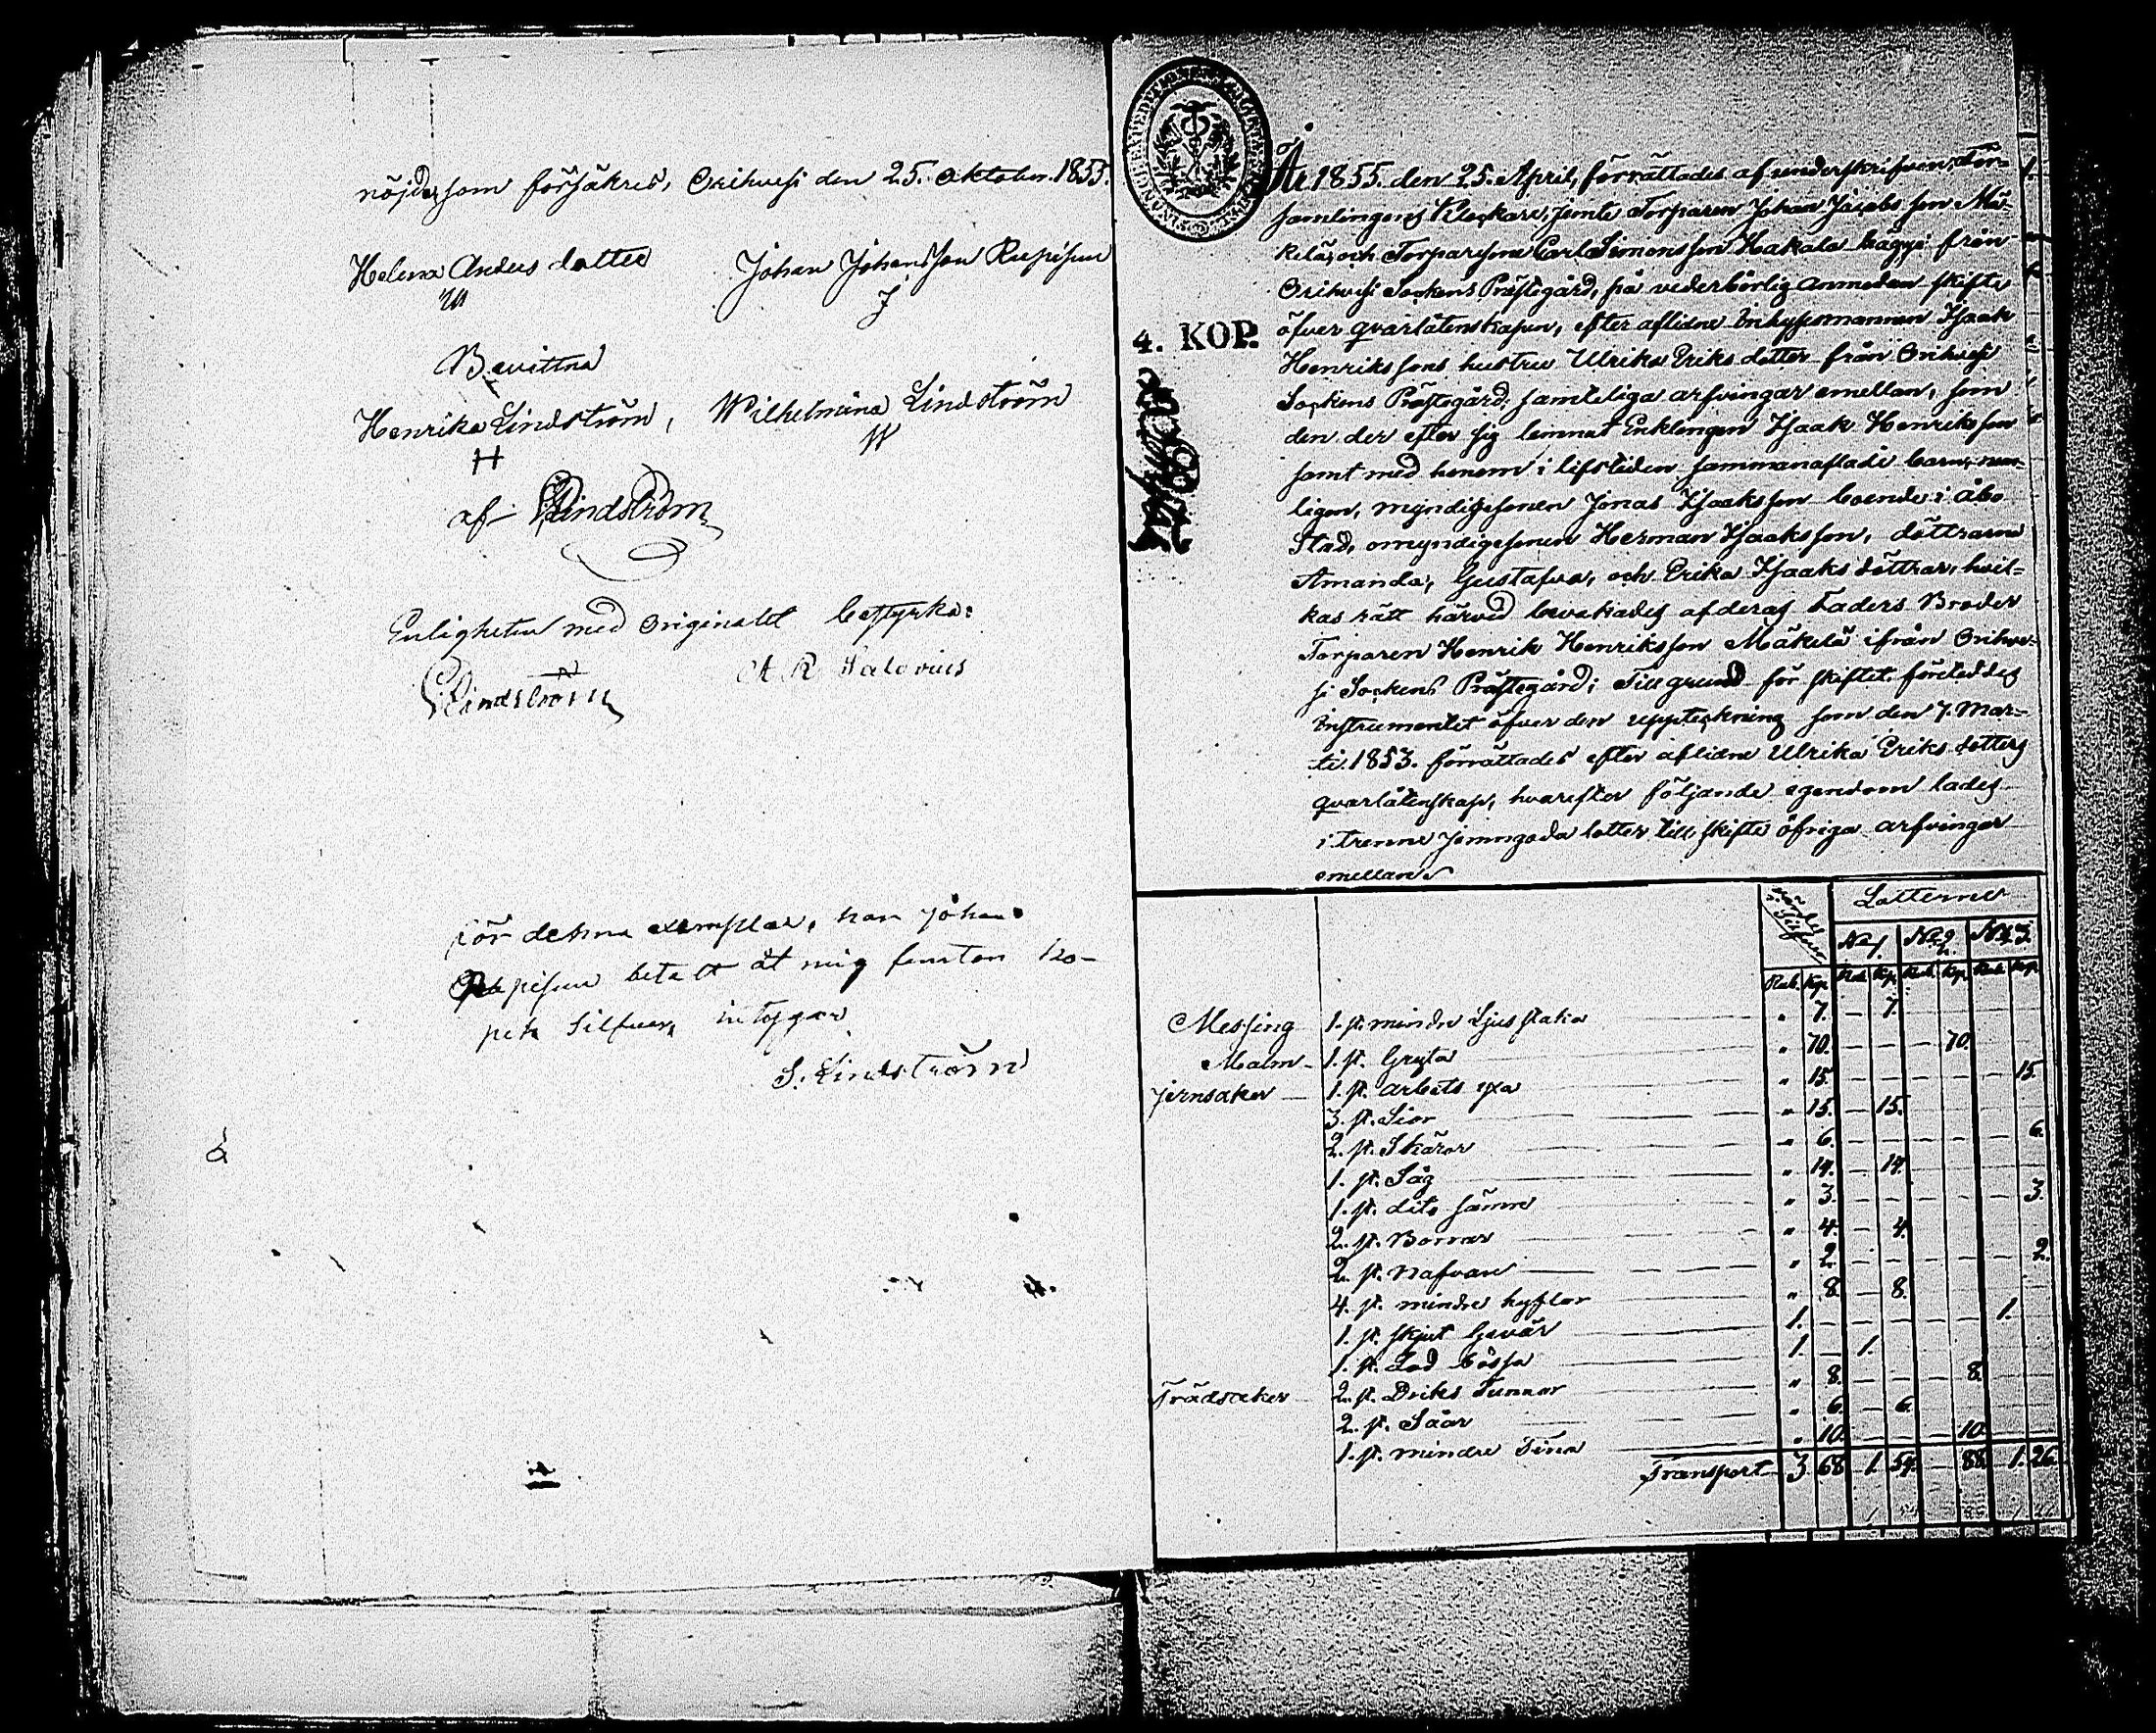 nöjde, som försäkres, Orihvesi den 25. Oktober. 1855.
Helena Anders dotter Johan Johansson Repisun
J
Bevittna
Henrika Lindström, Wilhelmina Lindström
H W
af Lindström
Enligheten med originalet bestyrka:
Lindström
för detta exemplar, har Johan
betalt åt mig femton ko-
pek Silfver, intygar
S. Lindström
4. KOP.
År 1855. den 25. April, förrättades af underskrifven, För-
samlingens Klockare, jemte Torparen Johan Jacobs son Mä-
kelä, och Torparesonen Carl Simonsson Hakala bägge från
Orihvesi Sockens Prästegård, på vederbörlig anmodan skifte
öfver qvarlåtenskapen, efter aflidne Inhysesmannen Isaak
Henrikssons hustru Ulrika Eriks dotter från Orihvesi
Sockens Prästegård, samteliga arfvingar emellan, som
den der efter sig lemnat Enklingen Isaak Henriksson
samt med honom i lifstiden sammanaflade barn, nem-
ligen, myndige sonen Jonas Isaaksson boende i Åbo
Stad, omyndige sonen Herman Isaaksson, döttrarne
Amanda, Gustafva, och Erika Isaaks döttrar, hvil-
kas rätt härvid bevakades af deras Faders Broder
Torparen Henrik Henriksson Mäkelä ifrån Orihve-
si Sockens Prästegård; Till grund för skiftet föreleddes
Instrumentet öfver den uppteckning som den 7. Mar-
tii 1853. förrättades efter aflidne Ulrika Eriks dotters
qvarlåtenskap, hvarefter följande egendom lades
i trenne jemngoda lotter till skifte öfriga arfvingar
emellan
Lotterne
No 1. No 2. No 3.
Rub. Kop. Rub. Kop. Rub. Kop. Rub. Kop.
Messing 1. st. mindre Ljusstaka " 7. 7.
Malm 1. st. Gryta " 70. 70.
Jernsaker 1. st. arbets yxa " 15. 15.
3. st. Liar " 15. 15.
2. st. Skäror " 6. 6.
1. st. Såg " 14. 14.
1. st. dito sämre " 3. 3.
2. st. Borrar " 4. 4.
2. st. nafvare " 2. 2.
4. st. mindre hyflar " 8. 8.
1. st. skjut Gevär 1. 1.
1. st. Lod bössa 1. 1.
Trädsaker 2. st. Driks Tunnor " 8. 8.
2. st. Såar " 6. 6.
1. st. mindre Tina " 10. 10.
Transport 3. 68. 1. 54. 88. 1. 26.